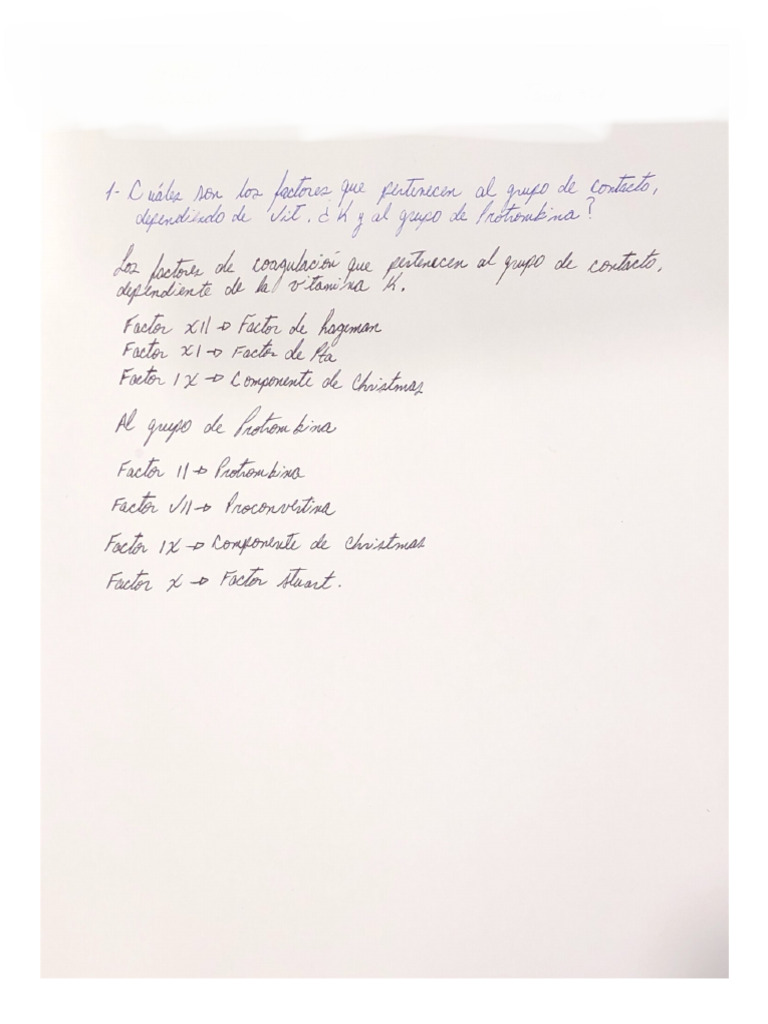 1- Cuáles son los factores que pertenecen al grupo de contacto,
dependiendo de Vit. ¿ K y al grupo de Protrombina?
Los factores de coagulación que pertenecen al grupo de contacto,
dependiente de la vitamina K.
Factor XII → Factor de hageman
Factor XI → Factor de Pta
Factor IX → Componente de Christmas
Al grupo de Protrombina
Factor II → Protrombina
Factor VII → Proconvertina
Factor IX → Componente de Christmas
Factor X → Factor Stuart.